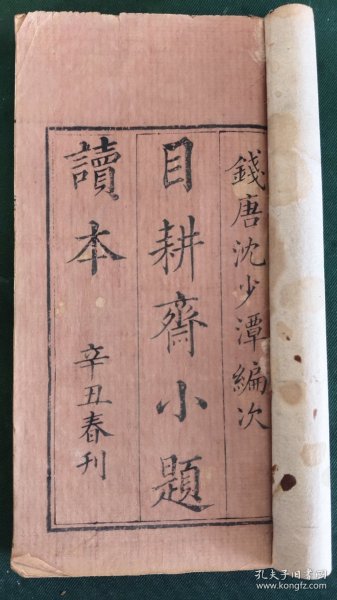 錢唐沈少潭編次
目耕齋小題
讀本
辛丑春刊
孔夫子旧书网
www.kongfz.com